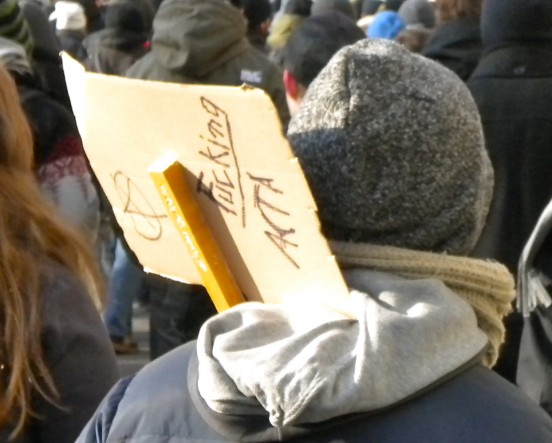 Fucking
ACTA